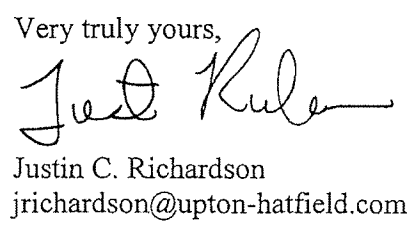 Very truly yours,
Justin C. Richardson
jrichardson@upton-hatfield.com